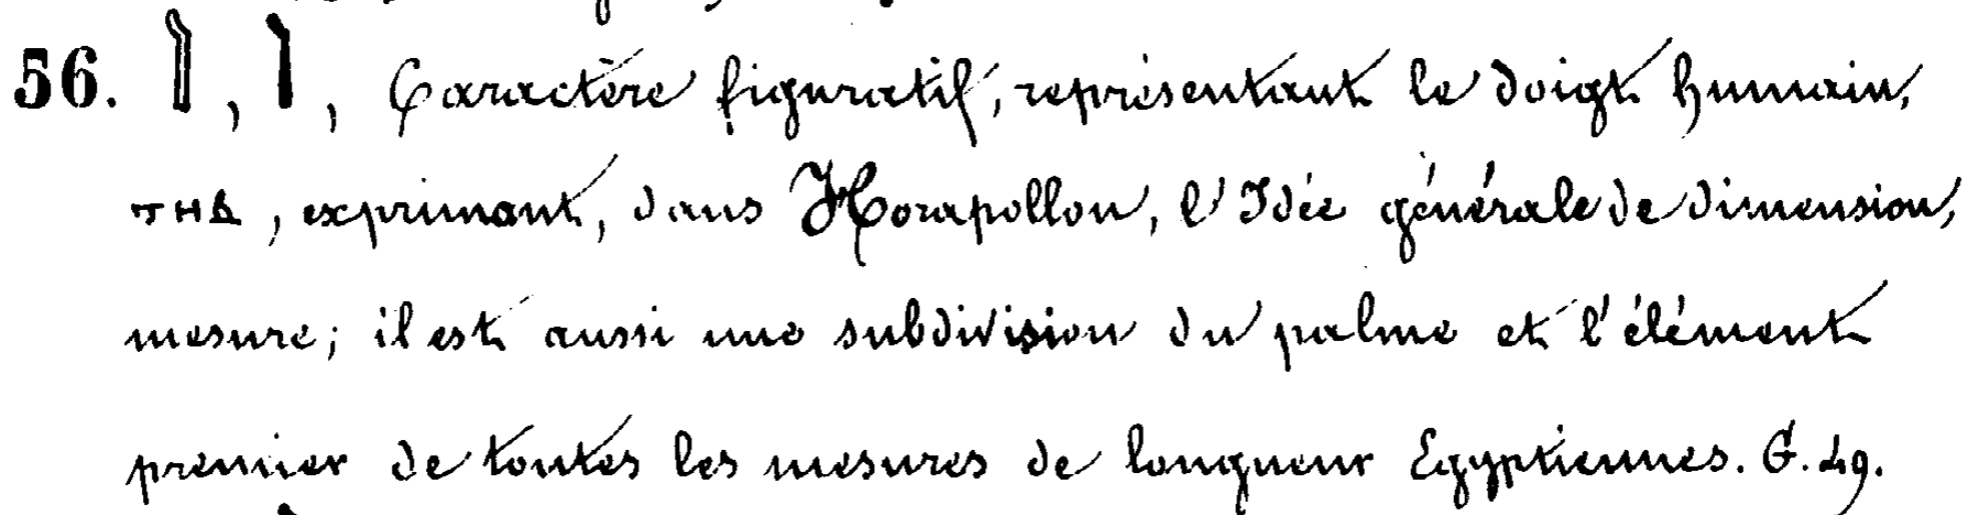 56. 𓂭, 𓂭, Caractère figuratif, représentant le doigt humain,
ⲧⲏⲃ, exprimant, dans Horapollon, l'Idée générale de dimension,
mesure; il est aussi une subdivision du palme et l'élément
premier de toutes les mesures de longueur Egyptiennes. G. 49.